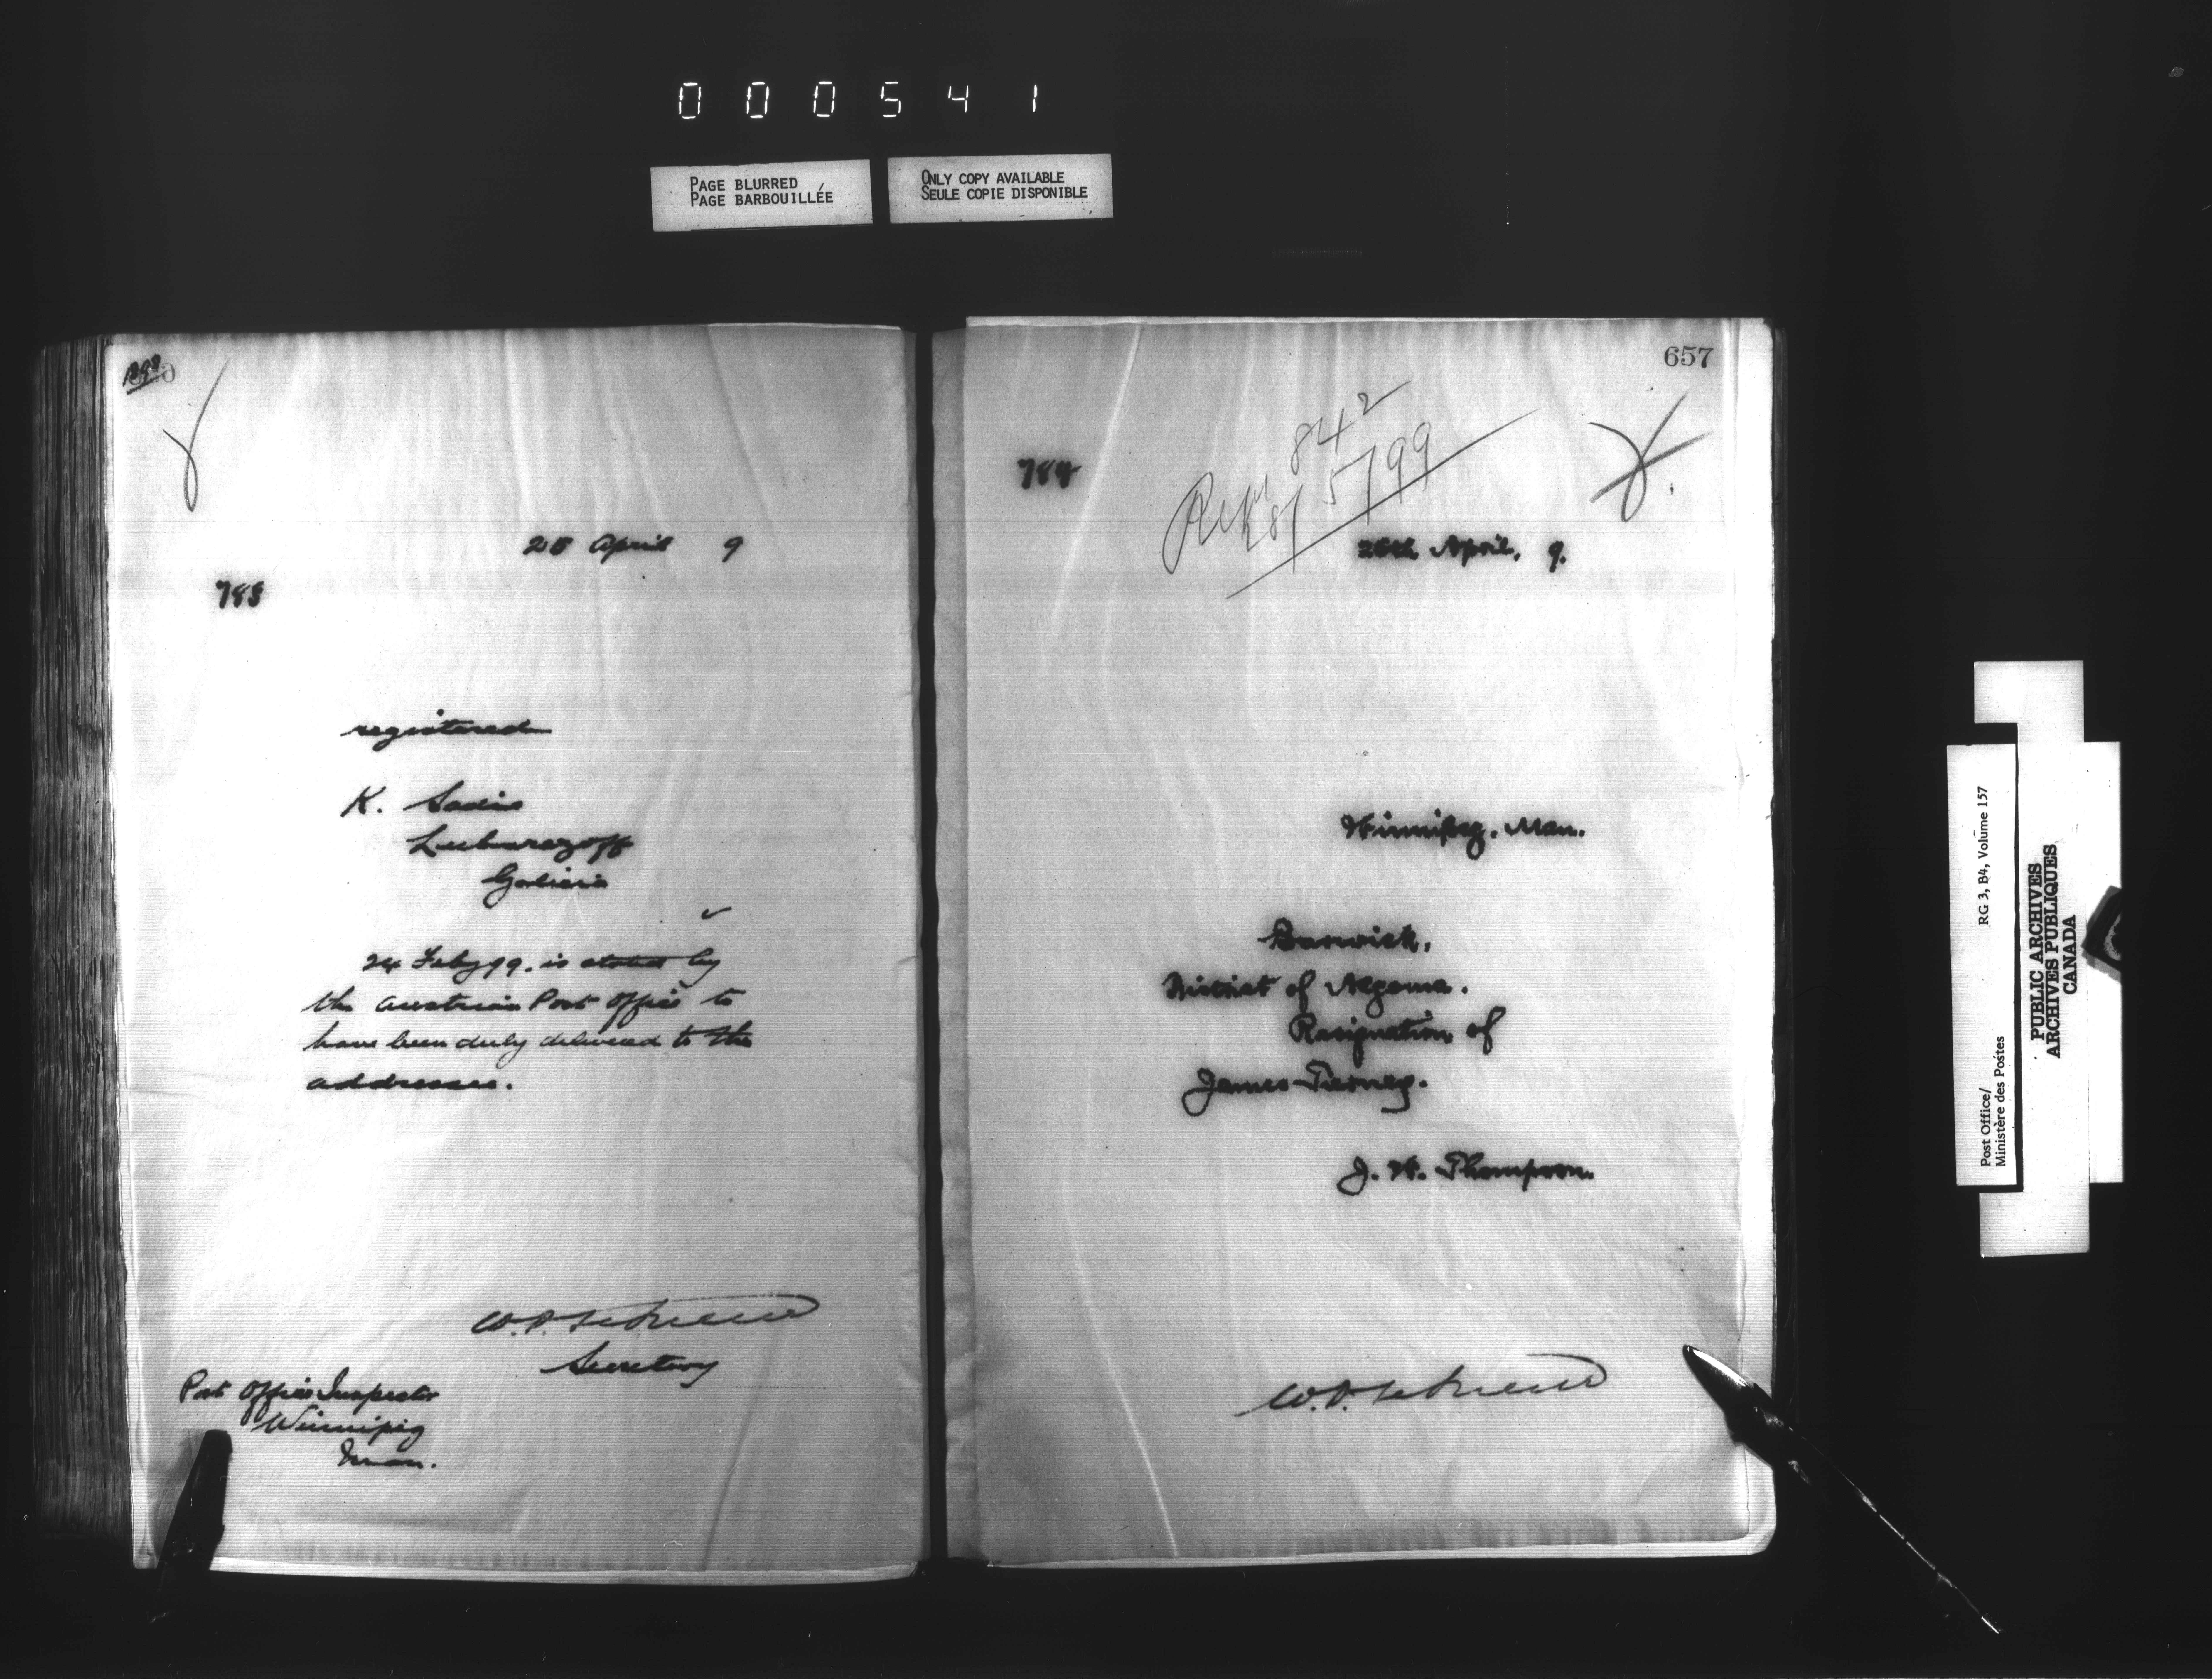 000541
PAGE BLURRED
PAGE BARBOUILLÉE
ONLY COPY AVAILABLE
SEULE COPIE DISPONIBLE
25 April 9
783
registered
K.
Galicia
24 Feby 99. is stated by
the Austrian Post Office to
have been duly delivered to the
addressee.
Secretary
Post Office Inspector
Winnipeg
Man.
657
784
842
8/5/99
25th April, 9.
Winnipeg, Man.
Barwick,
District of Algoma.
Resignation of
James Tierney.
J. W. Thompson.
Post Office/
Ministère des Postes
RG 3, B4, Volume 157
PUBLIC ARCHIVES
ARCHIVES PUBLIQUES
CANADA